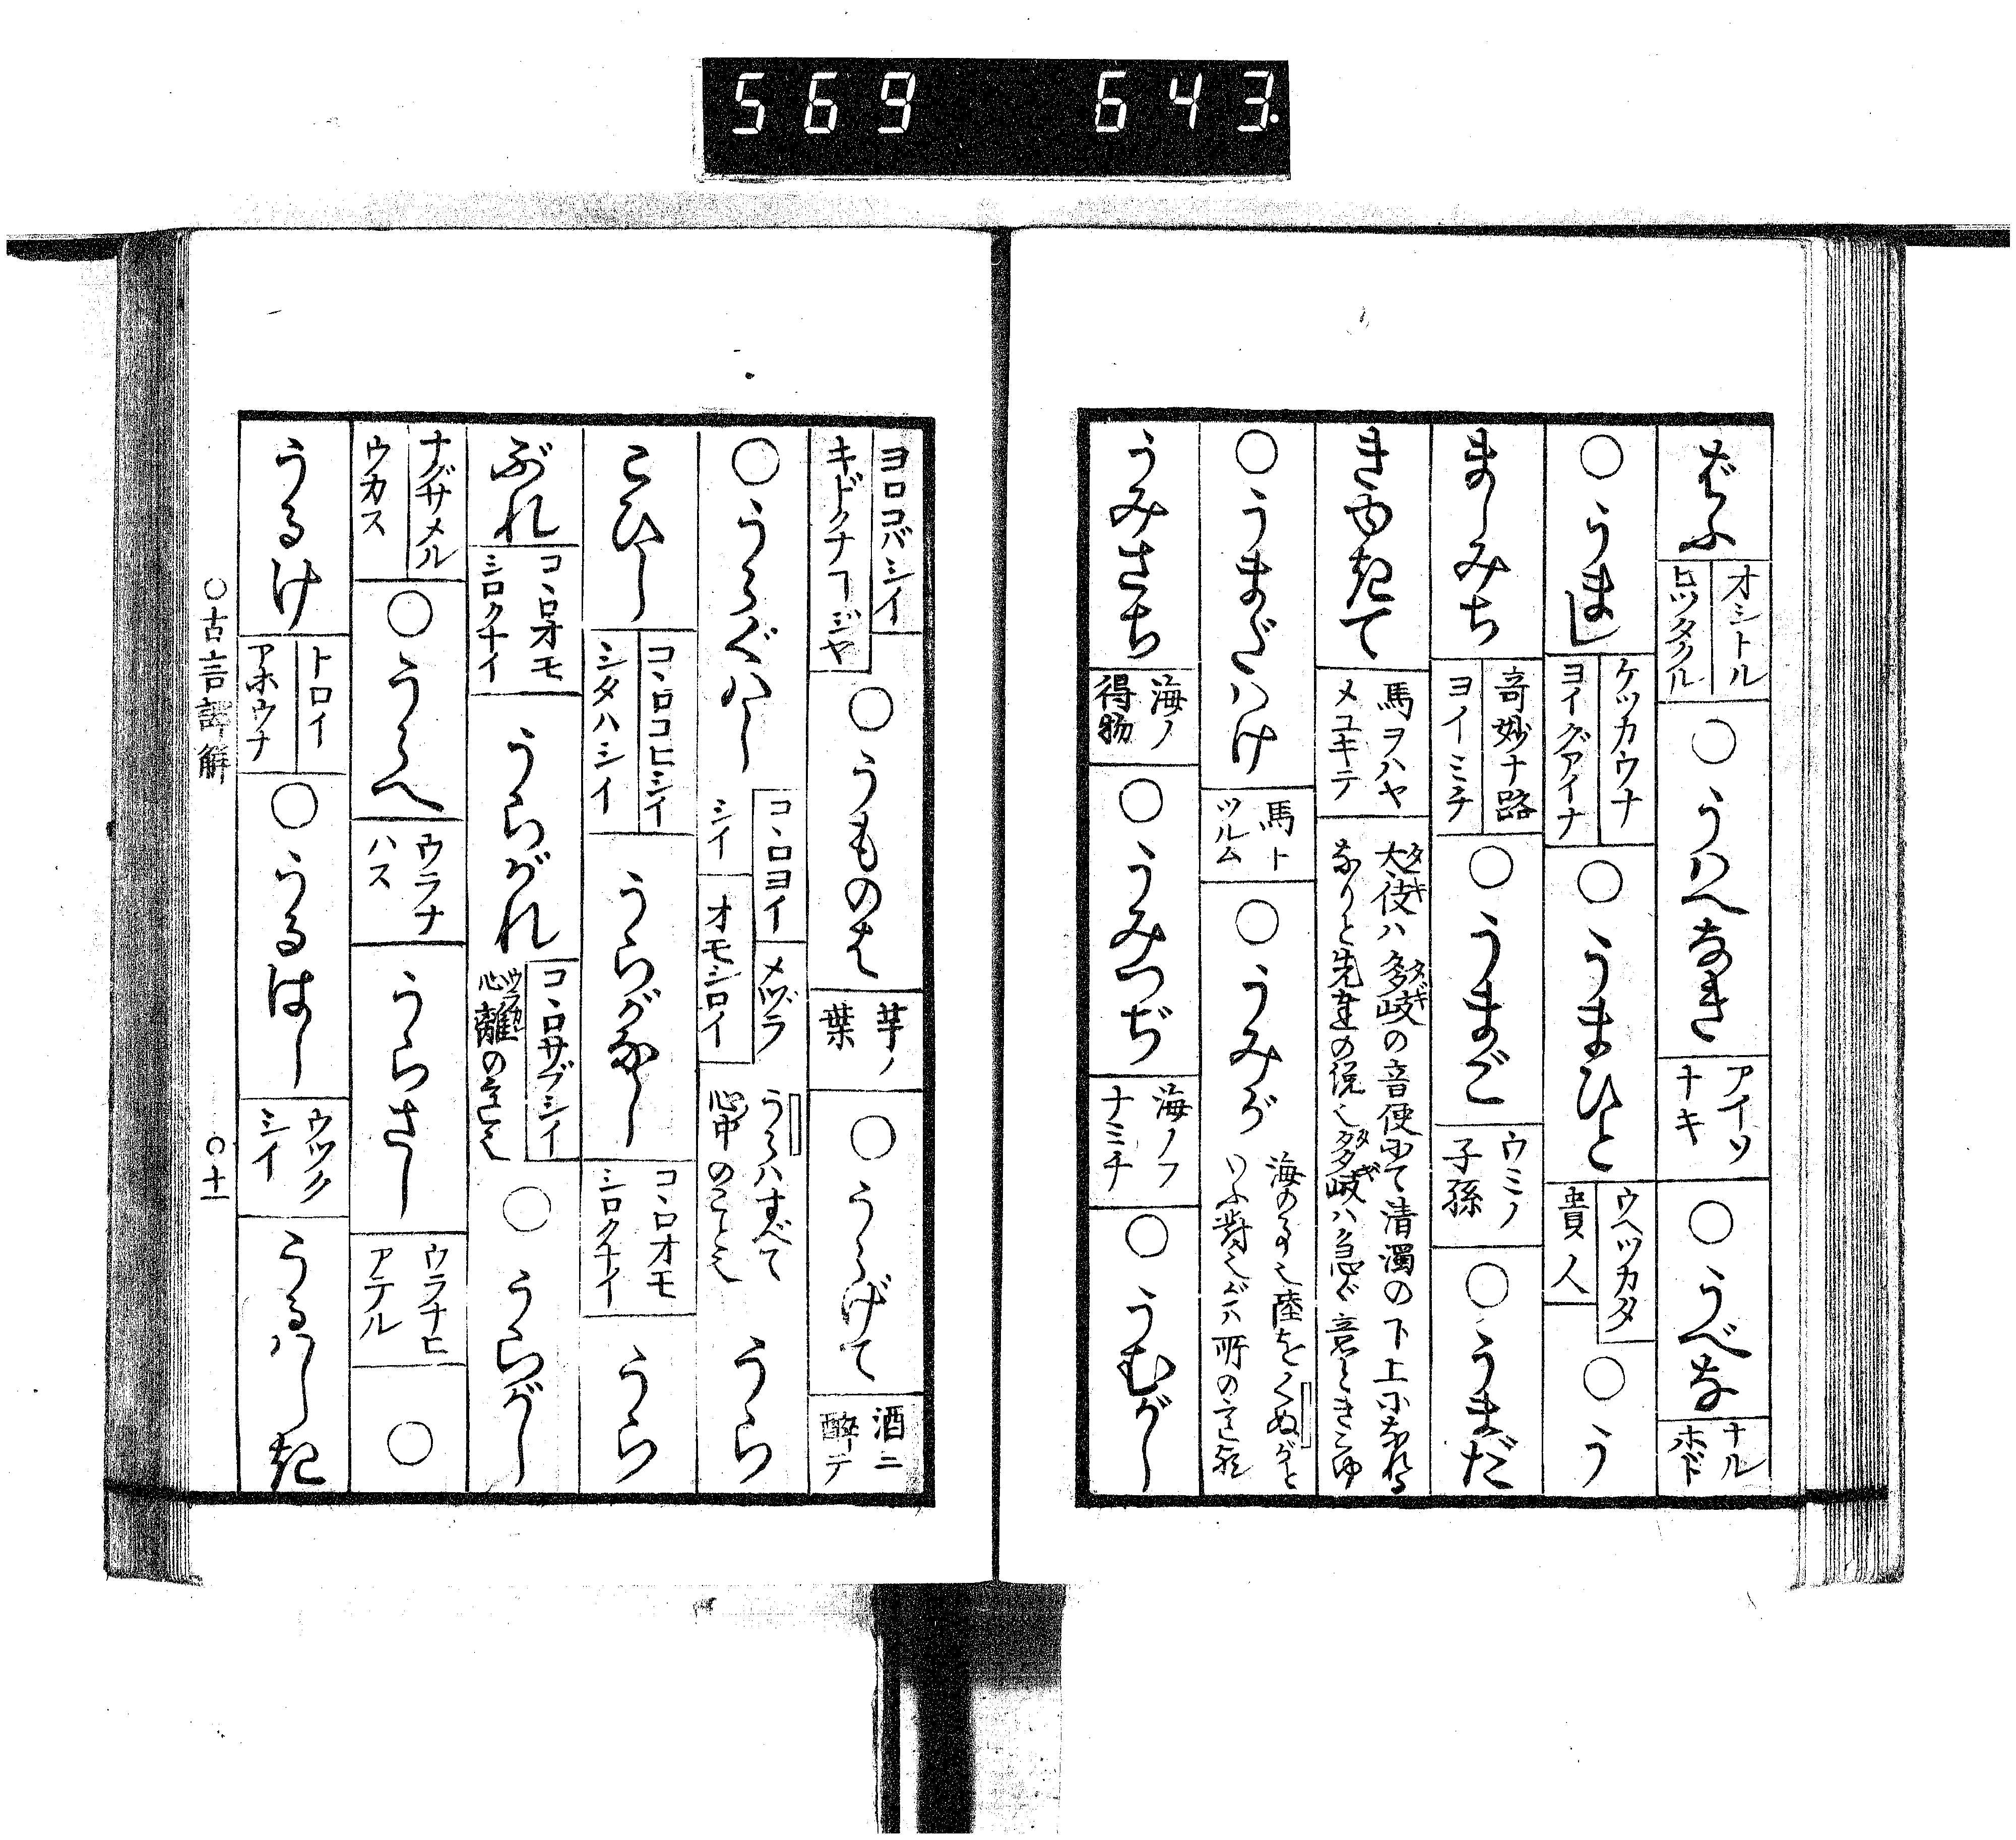 569 643.
ばふ オシトル ヒツタクル ○うはへなき アイソナキ ○うべな ナルホド
○うまし ケツカウナ ヨイグアイナ ○うまひと ウヘツカタ 貴人 ○う
ましみち 奇妙ナ路 ヨイミチ ○うまご ウミノ子孫 ○うまだ
きゆきたて 馬ヲハヤメコキテ 大伎ハ多岐の音便にて清濁の下上になれるなりと先達の説也多岐ハ急ぐ意ときこゆ
○うまだはけ 馬トツルム ○うみが 海のある也陸をくぬがといふ対也がハ所の意
うみさち 海ノ得物 ○うみつぢ 海ノフナミチ ○うむがし
ヨロコバシイ キドクナヿジヤ ○うものは 芋ノ葉 ○うらげて 酒ニ醉テ
○うらぐはし コヽロヨイ メヅラシイ オモシロイ うらハすべて心中のこと也 うら
こひし コヽロコヒシイ シタハシイ うらがなし コヽロオモシロクナイ うら
ぶれ コヽロオモシロクナイ うらがれ コヽロサブシイ 心離の意也 ○うらがし
ナグサメル ウカス ○うらへ ウラナハス うらさし ウラナヒアテル ○
うるけ トロイ アホウナ ○うるはし ウツクシイ うるハしき
○古言譯解 ○十一